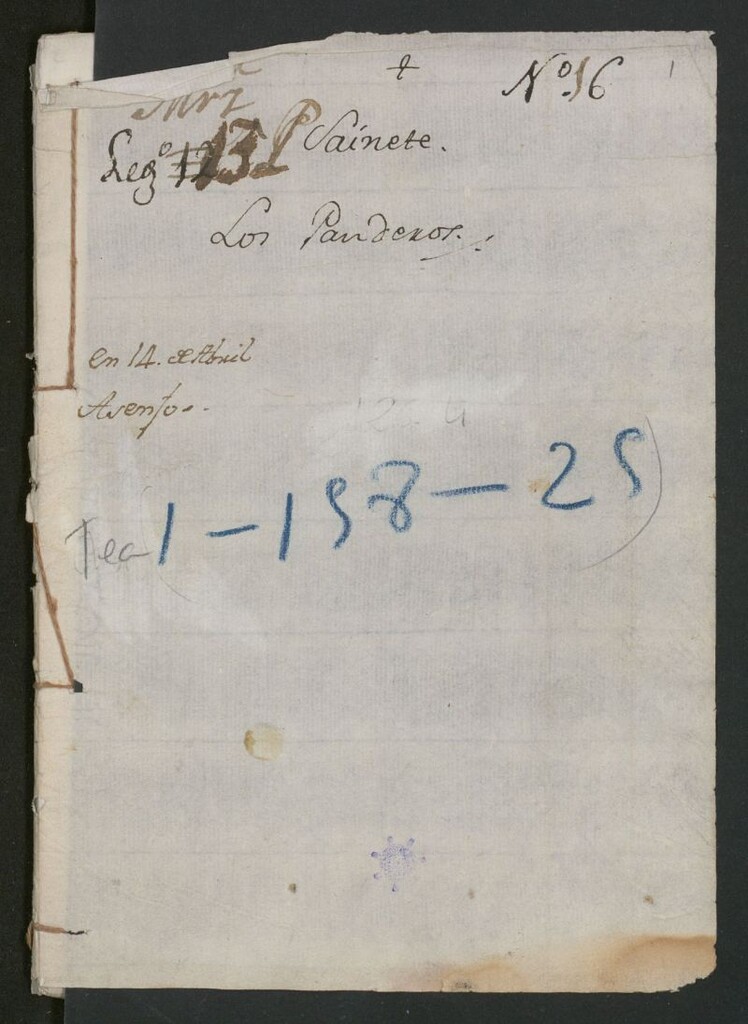 Nº 16
1
Mrz
Legº 12 13 P Sainete.
Los Panderos.
en 14. de Abril
Asenfo.
Tea (1-198-25)